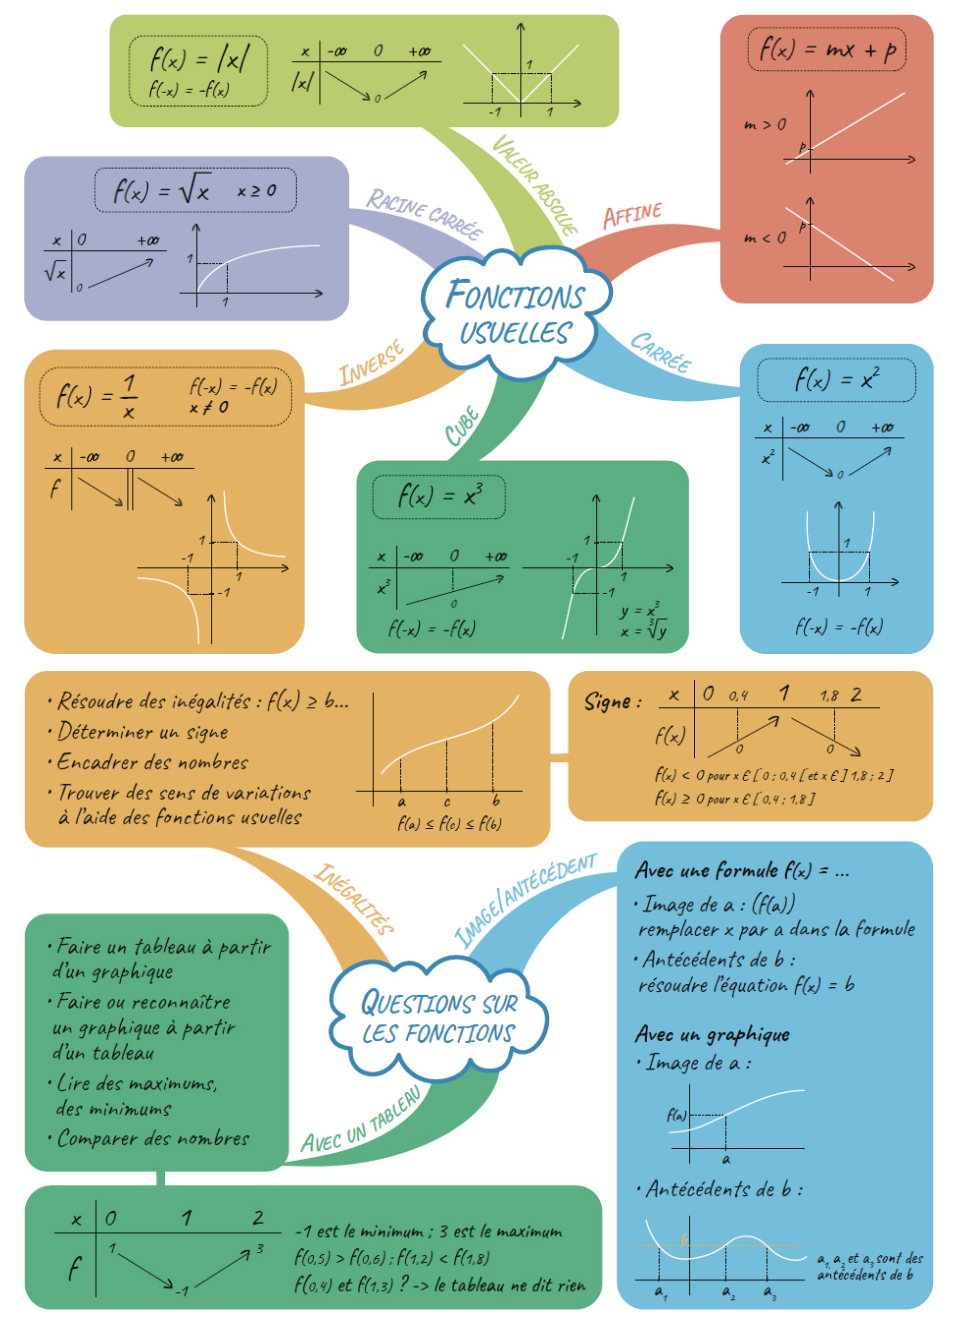 f(x) = |x|
f(-x) = -f(x)
x -∞ 0 +∞
|x| 0
1
-1 1
VALEUR ABSOLUE
f(x) = mx + p
m > 0
p
m < 0
p
AFFINE
f(x) = √x x ≥ 0
x 0 +∞
√x 0
1
1
RACINE CARRÉE
FONCTIONS
USUELLES
INVERSE
f(x) = 1/x
f(-x) = -f(x)
x ≠ 0
x -∞ 0 +∞
f
1
-1
1
-1
CUBE
f(x) = x³
x -∞ 0 +∞
x³ 0
f(-x) = -f(x)
1
-1
1
-1
y = x³
x = ∛y
CARRÉE
f(x) = x²
x -∞ 0 +∞
x² 0
1
-1 1
f(-x) = -f(x)
• Résoudre des inégalités : f(x) ≥ b...
• Déterminer un signe
• Encadrer des nombres
• Trouver des sens de variations
à l'aide des fonctions usuelles
a c b
f(a) ≤ f(c) ≤ f(b)
Signe :
x 0 0,4 1 1,8 2
f(x) 0 0
f(x) < 0 pour x ∈ [ 0 ; 0,4 [ et x ∈ ] 1,8 ; 2 ]
f(x) ≥ 0 pour x ∈ [ 0,4 ; 1,8 ]
INÉGALITÉS
IMAGE/ANTÉCÉDENT
QUESTIONS SUR
LES FONCTIONS
AVEC UN TABLEAU
• Faire un tableau à partir
d'un graphique
• Faire ou reconnaître
un graphique à partir
d'un tableau
• Lire des maximums,
des minimums
• Comparer des nombres
x 0 1 2
f 1 -1 3
-1 est le minimum ; 3 est le maximum
f(0,5) > f(0,6) ; f(1,2) < f(1,8)
f(0,4) et f(1,3) ? -> le tableau ne dit rien
Avec une formule f(x) = ...
• Image de a : (f(a))
remplacer x par a dans la formule
• Antécédents de b :
résoudre l'équation f(x) = b
Avec un graphique
• Image de a :
f(a)
a
• Antécédents de b :
b
a₁ a₂ a₃
a₁, a₂ et a₃ sont des
antécédents de b